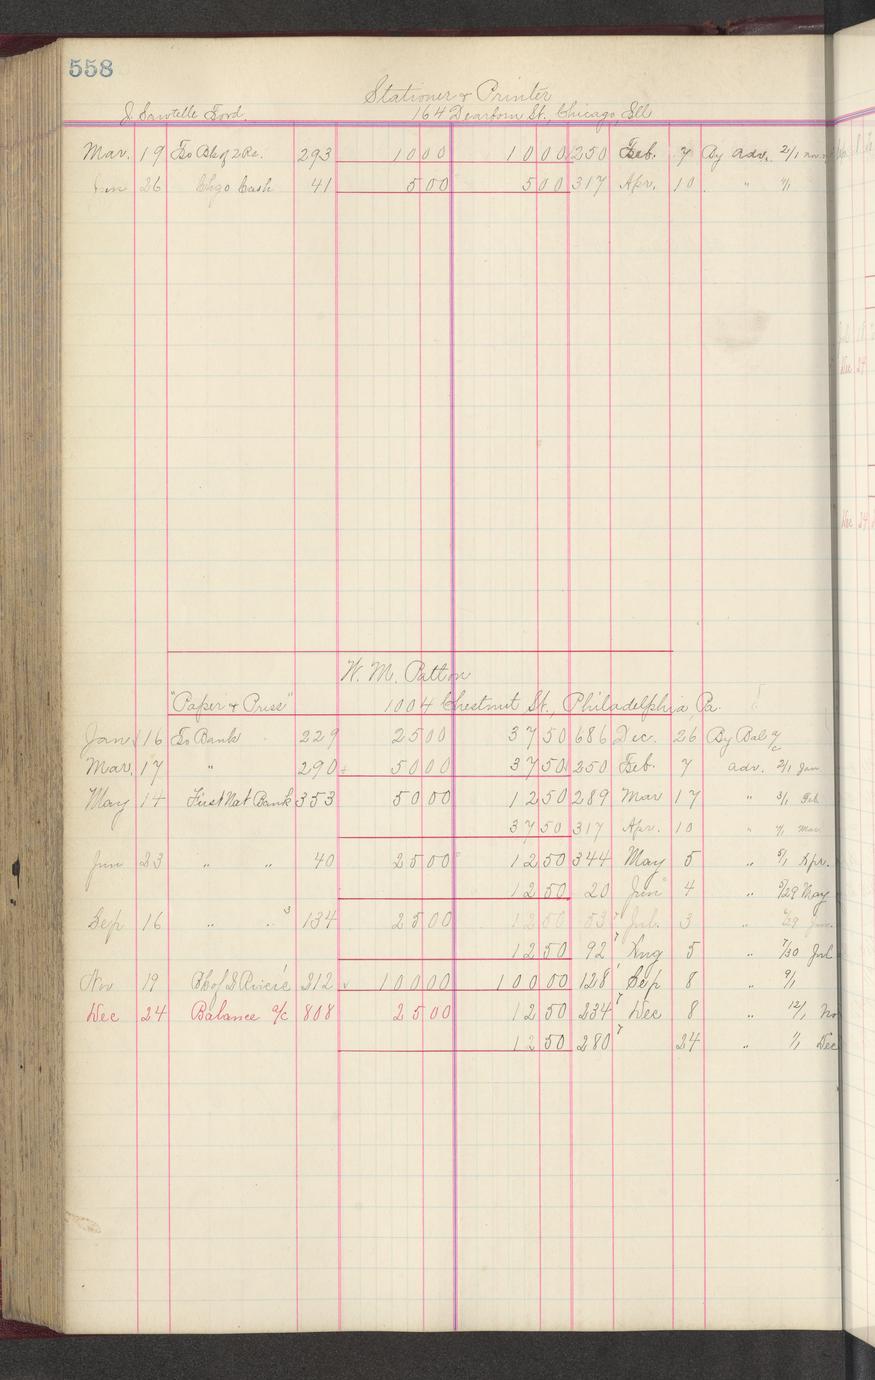 558
Stationer & Printer
J. Sawtelle Ford. 164 Dearborn St., Chicago, Ill
Mar. 19 To Bk of 2 Re. 293 10 00 10 00 250 Feb. 7 By adv. 2/1
Jun 26 Chgo Cash 41 5 00 5 00 317 Apr. 10 " 4/1
W. M. Patton
"Paper & Press" 1004 Chestnut St., Philadelphia, Pa.
Jan 16 To Bank 229 25 00 37 50 686 Dec. 26 By Bal a/c
Mar. 17 " 290 50 00 37 50 250 Feb. 7 adv. 2/1 Jan
May 14 First Nat Bank 353 50 00 12 50 289 Mar 17 " 3/1 Feb
37 50 317 Apr. 10 " 4/1 Mar
Jun 23 " " 40 25 00 12 50 344 May 5 " 5/1 Apr.
12 50 20 Jun 4 " 5/29 May
Sep 16 " " 134 25 00 12 50 53 Jul. 3 " 6/29 Jun.
12 50 92 Aug 5 " 7/30 Jul
Nov 19 212 100 00 100 00 128 Sep 8 " 9/1
Dec 24 Balance a/c 808 25 00 12 50 234 Dec 8 " 12/1 No
12 50 280 24 " 1/1 Dec
Dec 24
Dec 24